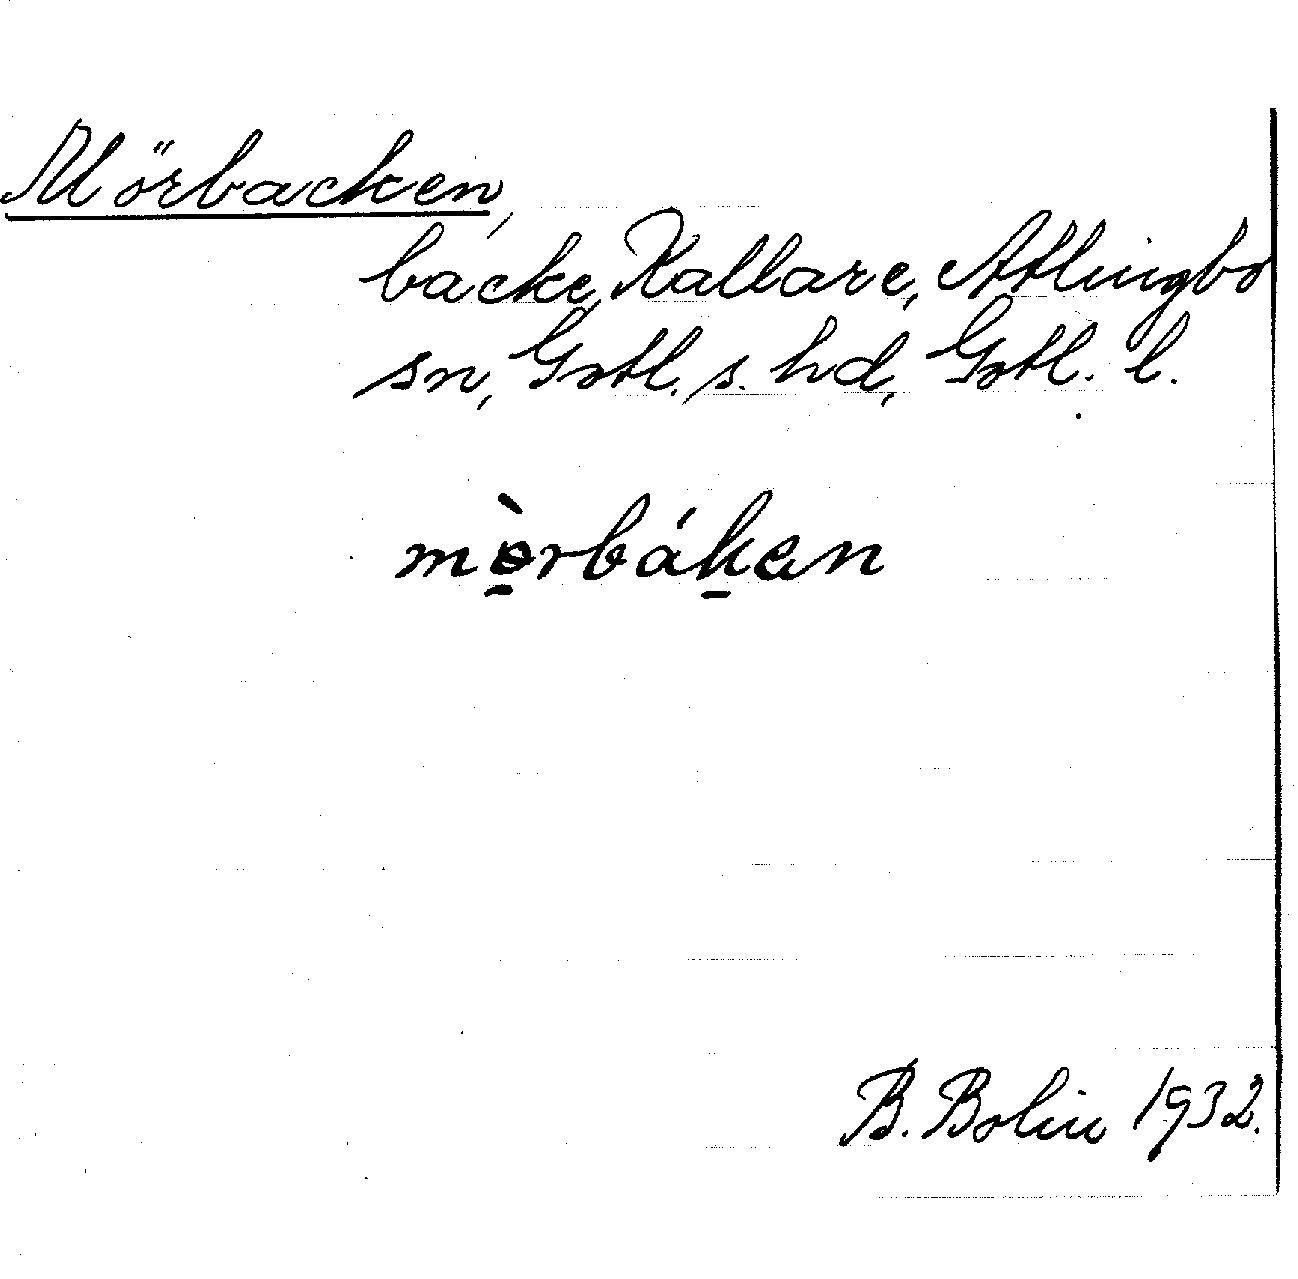 Mörbacken,
backe, Kallare, Atlingbo
sn, Gotl. s. hd, Gotl. l.
mə̱̀rbáḵen
B. Bolin 1932.